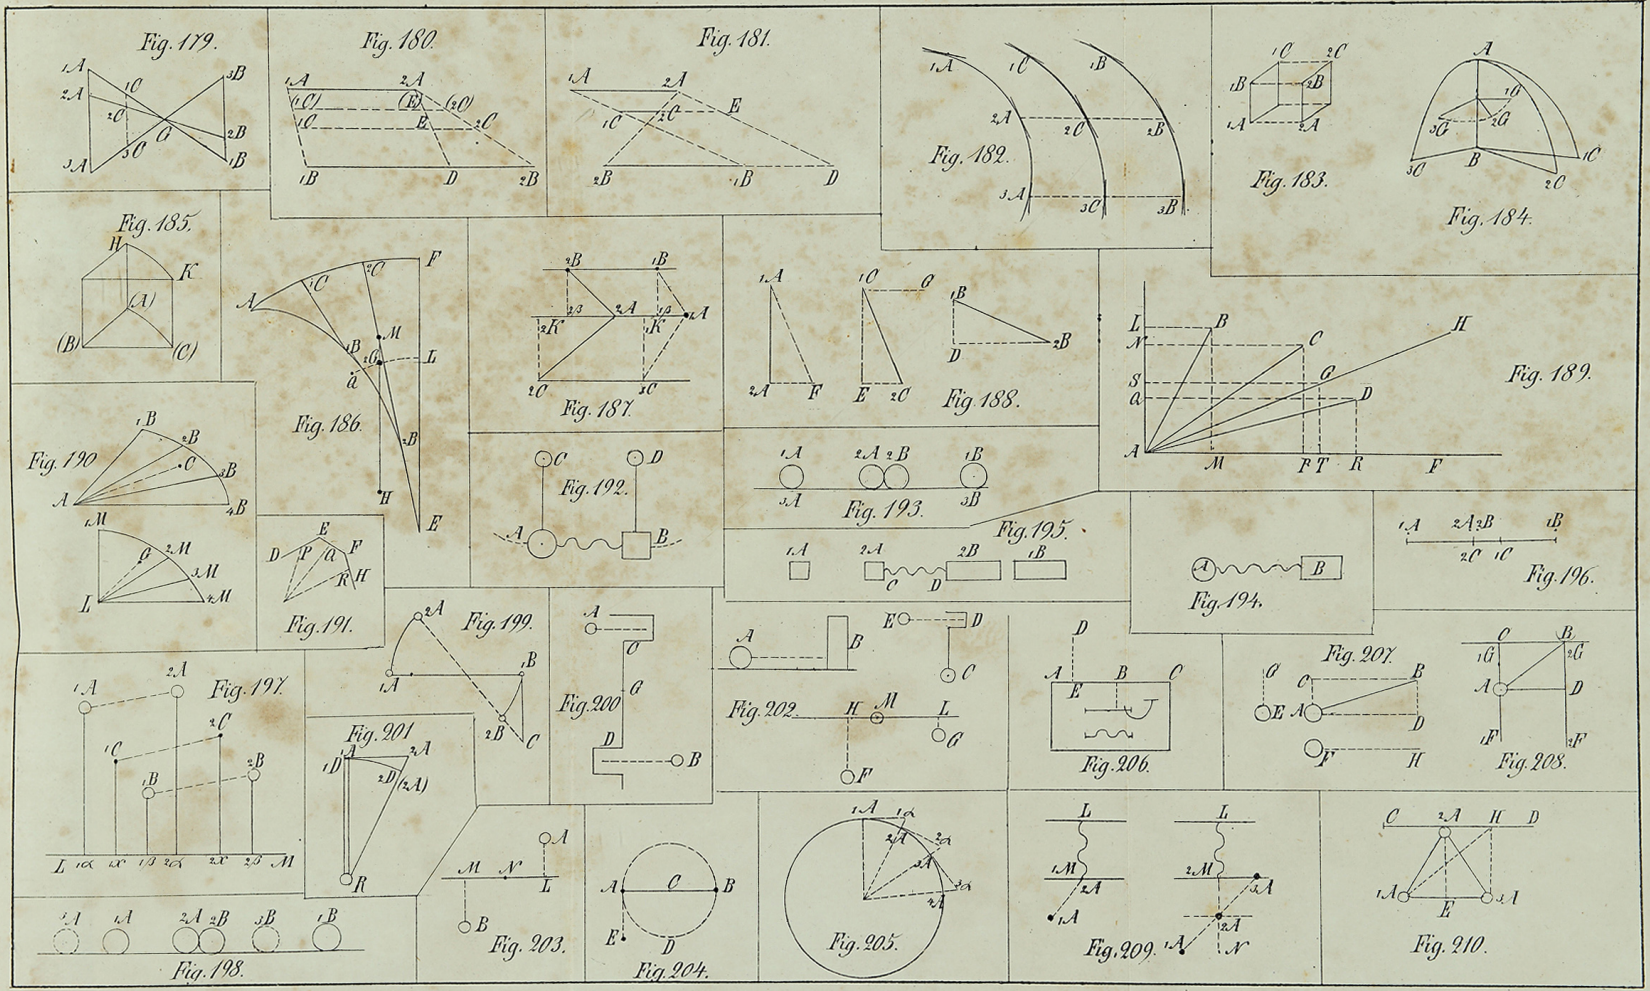 Fig. 179.
1A
2A
3A
1C
2C
3C
G
3B
2B
1B
Fig. 180.
1A
2A
(1C)
(E)
(2C)
1C
E
2C
1B
D
2B
Fig. 181.
1A
2A
1C
2C
E
2B
1B
D
Fig. 182.
1A
1C
1B
2A
2C
2B
3A
3C
3B
Fig. 183.
1C
2C
1B
2B
1A
2A
Fig. 184.
A
1G
3G
2G
B
3C
1C
2C
Fig. 185.
H
K
(A)
(B)
(C)
Fig. 186.
A
1C
2C
F
M
1B
2G
L
a
2B
H
E
Fig. 187.
2B
1B
2β
2A
1β
1A
2K
1K
2C
1C
Fig. 188.
1A
1C
G
1B
D
2B
2A
F
E
2C
Fig. 189.
L
B
H
N
C
S
G
Q
D
A
M
P
T
R
F
Fig. 190
1B
2B
C
3B
A
4B
1M
G
2M
3M
L
4M
Fig. 191.
D
P
E
Q
F
R
H
Fig. 192.
C
D
A
B
Fig. 193.
1A
2A
2B
1B
3A
3B
Fig. 195.
1A
2A
2B
1B
C
D
Fig. 194.
A
B
Fig. 196.
1A
2A
2B
1B
2C
1C
Fig. 197.
1A
2A
1C
2C
1B
2B
L
1α
1x
1β
2α
2x
2β
M
Fig. 198.
3A
1A
2A
2B
3B
1B
Fig. 199.
2A
1A
1B
2B
C
Fig. 200
A
C
G
D
B
Fig. 201
1A
2A
1D
2D
(2A)
R
Fig. 202.
A
B
E
D
C
H
M
L
G
F
Fig. 203.
A
M
N
L
B
Fig. 204.
A
C
B
E
D
Fig. 205.
1A
1α
2A
2α
3A
3α
4A
Fig. 206.
D
A
B
C
E
Fig. 207.
G
C
B
E
A
D
F
H
Fig. 208.
C
B
1G
2G
A
D
1F
2F
Fig. 209.
L
L
1M
2A
1A
2M
3A
2A
1A
N
Fig. 210.
C
2A
H
D
1A
E
3A